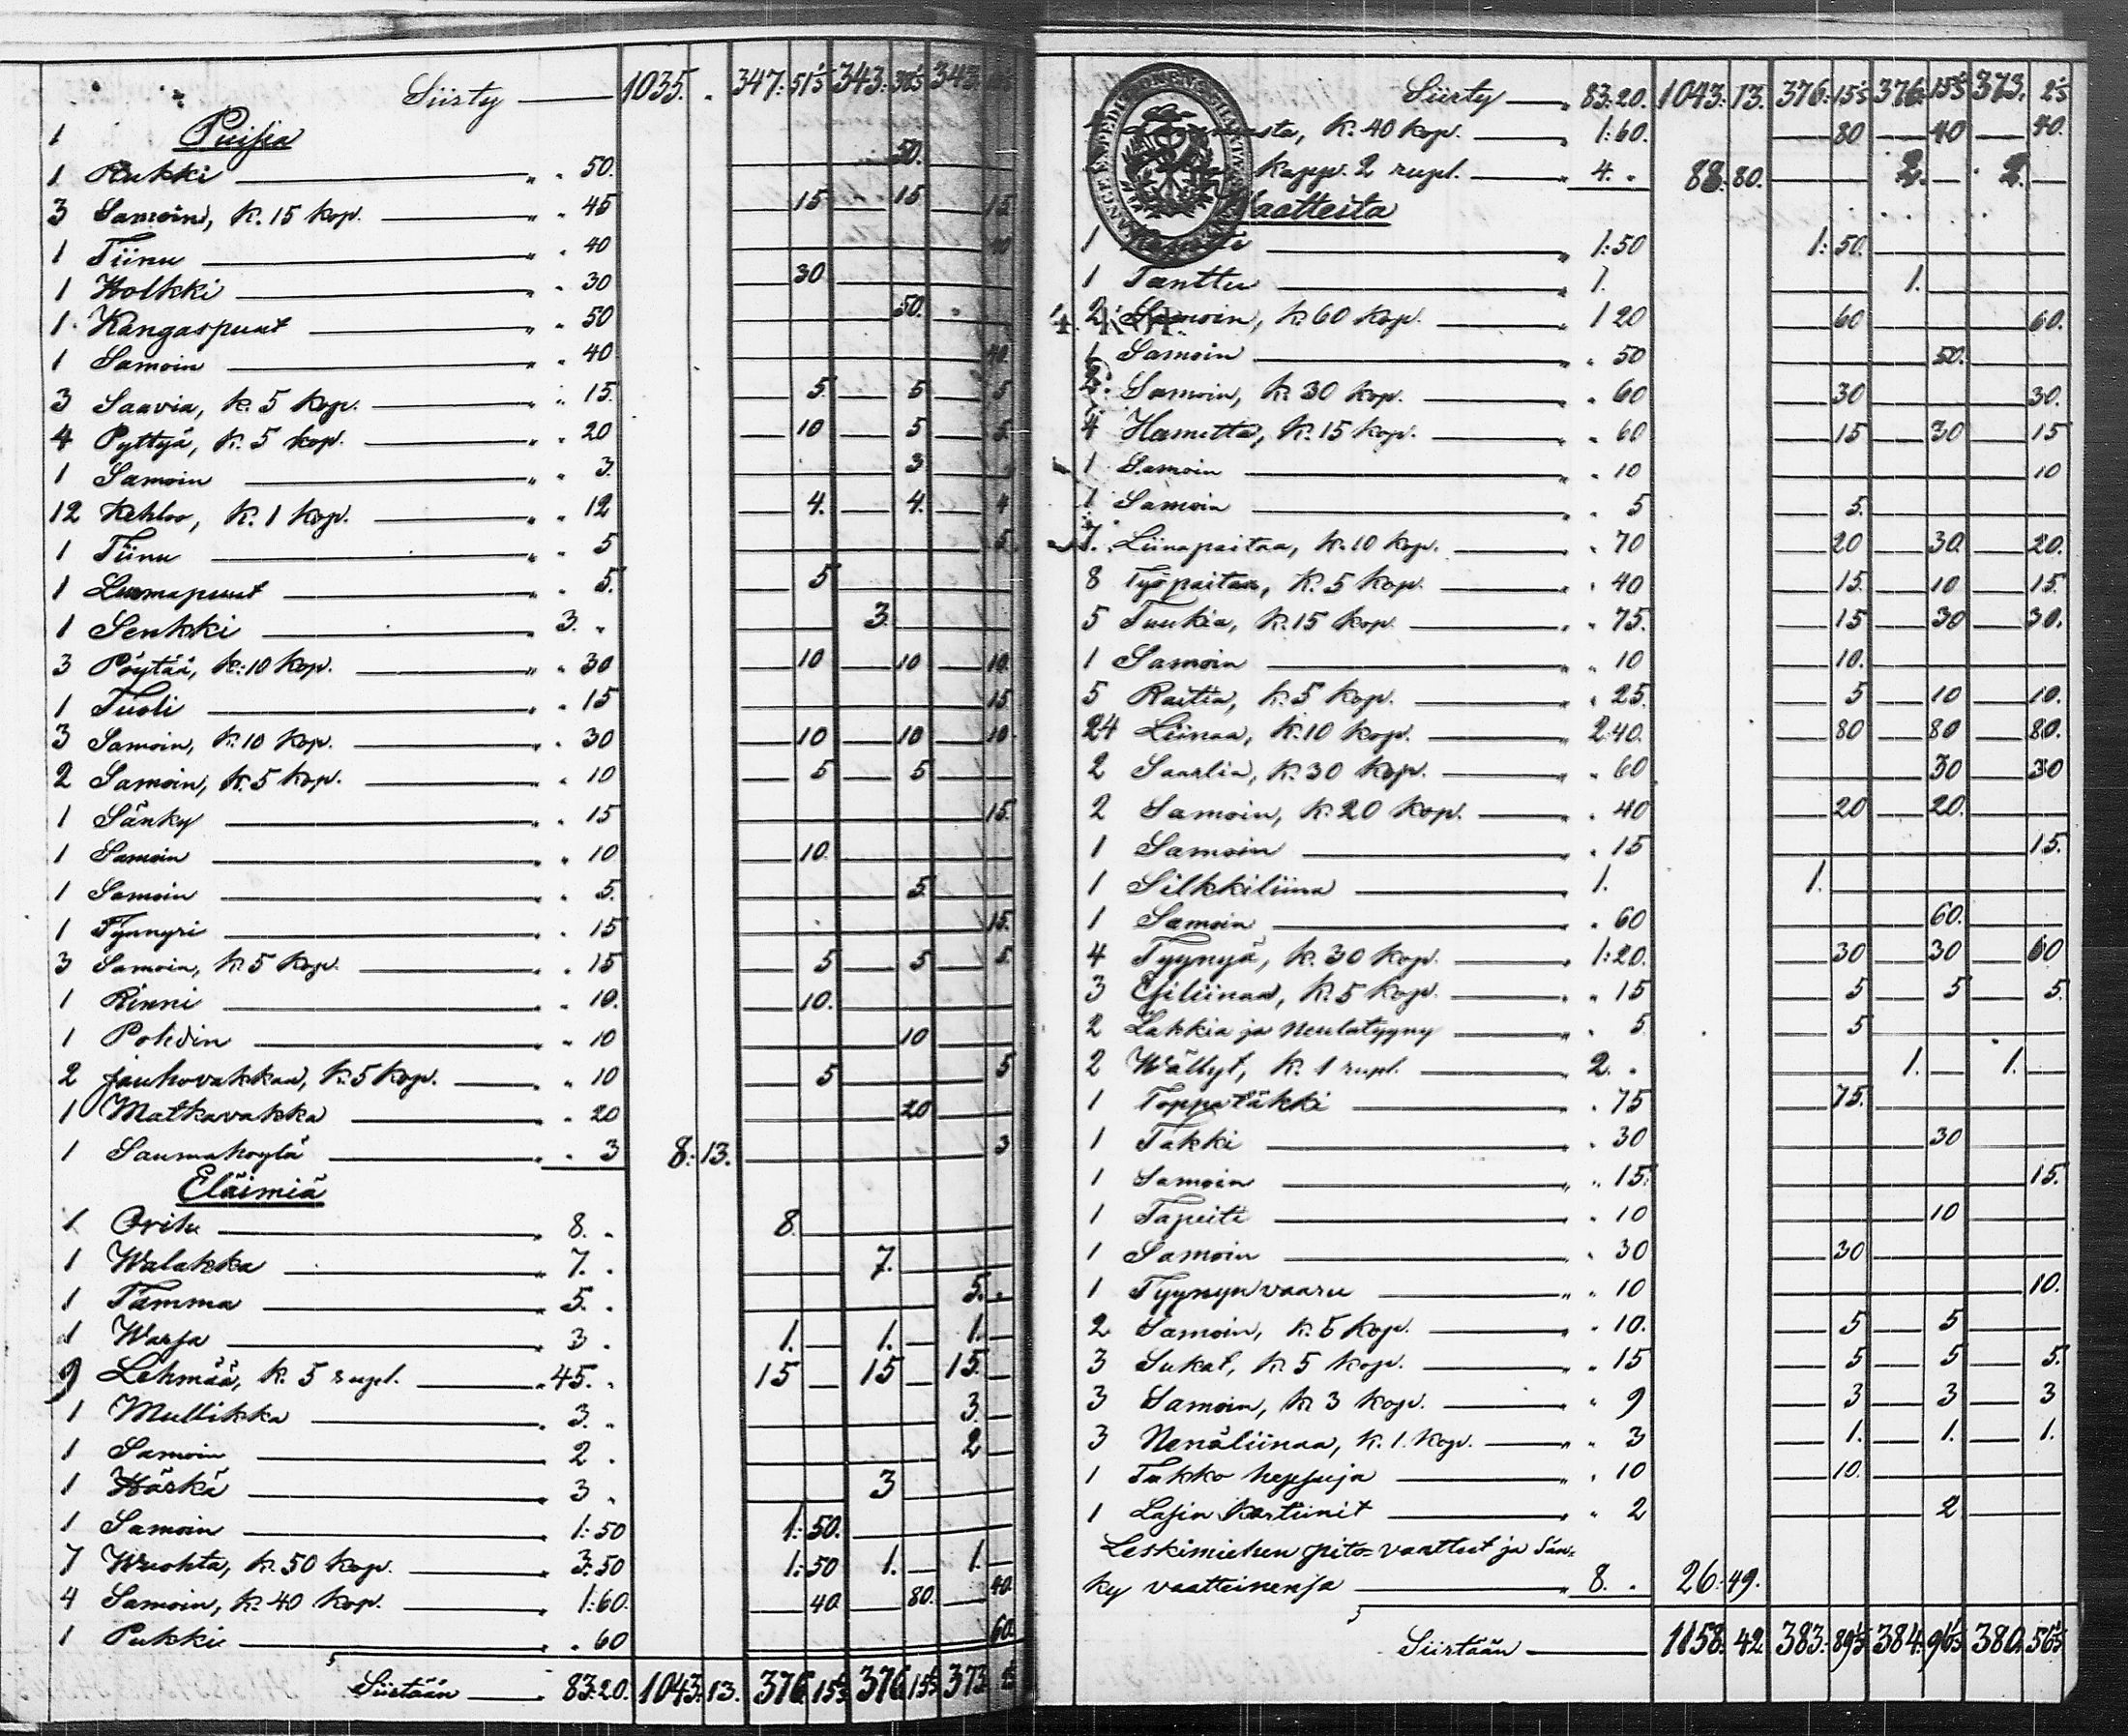 Siirty — 1035. „ 347: 51⅓ 343: 343
1 Puisia
1 Rukki — „ „ 50. 50.
3 Samoin, k. 15 kop. — „ „ 45 15 15 15
1 Tiinu — „ „ 40 40
1 Holkki — „ „ 30 30
1 Kangaspuut — „ „ 50 50.
1 Samoin — „ „ 40 40.
3 Saavia, k. 5 kop. — „ „ 15. 5. 5 5
4 Pyttyä, k. 5 kop. — „ „ 20 10 5 5.
1 Samoin — „ „ 3. 3
12 Kehloo, k. 1 kop. — „ „ 12 4. 4. 4
1 Tiinu — „ „ 5 5.
1 Luomapuut — „ „ 5. 5
1 Senkki — „ 3. „ 3.
3 Pöytää, k. 10 kop. — „ „ 30 10 10 10.
1 Tuoli — „ „ 15 15
3 Samoin, k. 10 kop. — „ „ 30 10 10 10
2 Samoin, k. 5 kop. — „ „ 10 5 5
1 Sänky — „ „ 15 15.
1 Samoin — „ „ 10 10.
1 Samoin — „ „ 5. 5.
1 Tynnyri — „ „ 15 15.
3 Samoin, k. 5 kop. — „ „ 15 5 5 5.
1 Rinni — „ „ 10. 10.
1 Pohdin — „ „ 10 10
2 Jauhovakkaa, k. 5 kop. — „ „ 10 5 5
1 Matkavakka — „ „ 20 20
1 Saumahöylä — „ „ 3 8: 13. 3
Eläimiä
1 Orihi — „ 8. „ 8.
1 Walakka — „ 7. „ 7.
1 Tamma — „ 5. „ 5. „
1 Warsa — „ 3 „ 1. 1. 1.
9 Lehmää, k. 5 rupl. — „ 45. „ 15 15 15.
1 Mullikka — „ 3. „ 3.
1 Samoin — „ 2 „ 2
1 Häskä — „ 3 „ 3
1 Samoin — „ 1:50 1:50.
7 Wuohta, k. 50 kop. — „ 3:50 1:50 1. 1.
4 Samoin, k. 40 kop. — „ 1:60. 40. 80. 40.
1 Pukki — „ „ 60 60.
Siirtään — „ 83:20. 1043: 13. 376: 15⅓ 376: 15⅓ 373.
Siirty — „ 83:20. 1043: 13. 376: 15⅓ 376: 15⅓ 373. 2⅓
k. 40 kop. — „ 1:60. 80 40 40.
kapp. 2 rupl. — „ 4. „ 88. 80. 2. 2.
Waatteita
1 — „ 1:50 1:50.
1 Tanttu — „ 1. 1.
2 Samoin, k. 60 kop. — „ 1 20 60 60.
1 Samoin — „ „ 50 50.
2. Samoin, k. 30 kop. — „ „ 60 30 30.
4 Hametta, k. 15 kop. — „ „ 60 15 30 15
1 Samoin — „ „ 10 10
1 Samoin — „ „ 5 5.
7. Liinapaitaa, k. 10 kop. — „ 70 20 30. 20.
8 Työpaitaa, k. 5 kop. — „ „ 40 15. 10 15.
5 Tuukia, k. 15 kop. — „ „ 75. 15 30 30.
1 Samoin — „ „ 10 10.
5 Raitia, k. 5 kop. — „ „ 25. 5 10 10.
24 Liinaa, k. 10 kop. — „ 2:40. 80 80 80.
2 Saarlia, k. 30 kop. — „ „ 60 30 30
2 Samoin, k. 20 kop. — „ „ 40 20 20.
1 Samoin — „ „ 15 15.
1 Silkkiliina — „ 1. 1.
1 Samoin — „ „ 60 60.
4 Tyynyä, k. 30 kop. — „ 1:20. 30 30 60
3 Esiliinaa, k. 5 kop. — „ „ 15 5 5 5.
2 Lakkia ja neulatyyny — „ „ 5 5
2 Wällyt, k. 1 rupl. — „ 2. „ 1. 1.
1 Toppatäkki — „ „ 75 75.
1 Takki — „ „ 30 30
1 Samoin — „ „ 15. 15.
1 Tapeite — „ „ 10 10
1 Samoin — „ „ 30 30
1 Tyynynvaaru — „ „ 10 10.
2 Samoin, k. 5 kop. — „ „ 10. 5 5
3 Sukat, k. 5 kop. — „ „ 15 5 5 5.
3 Samoin, k. 3 kop. — „ „ 9 3 3 3
3 Nenäliinaa, k. 1. kop. — „ „ 3 1. 1. 1.
1 Takko — „ „ 10 10.
1 Lasin kartiinit — „ „ 2 2
Leskimiehen pito=vaatteet ja sän=
ky vaatteinensa — „ 8. „ 26: 49.
Siirtään — 1158. 42 383: 89⅓ 384: 380. 56⅓